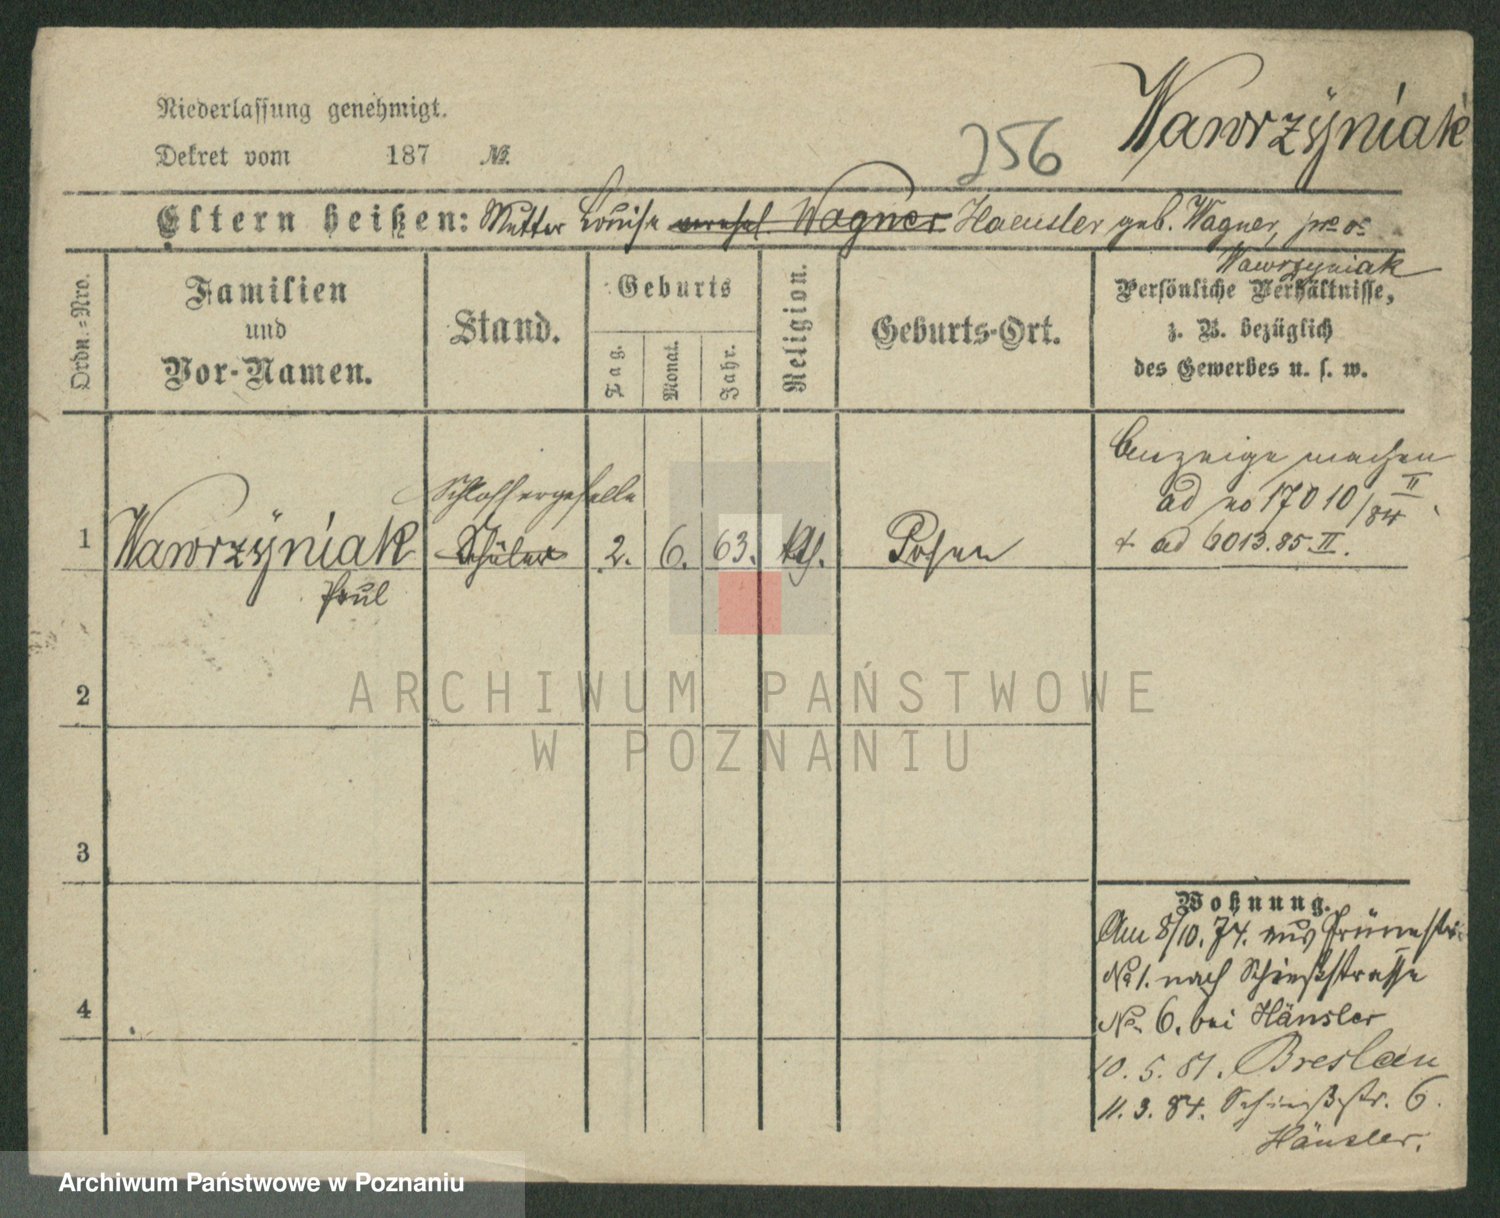 Niederlassung genehmigt.
Dekret vom 187 №
256
Wawrzÿniak
Eltern heißen: Mutter Louise verehel. Wagner Haensler geb. Wagner,
Wawrzyniak
Ordn.=Nro.
Familien
und
Vor-Namen.
Stand.
Geburts
Tag.
Monat.
Jahr.
Religion.
Geburts-Ort.
Persönliche Verhältnisse,
z. B. bezüglich
des Gewerbes u. s. w.
Anzeige machen
ad no 17010/84 II
+ ad 6013.85.II.
Schlossergeselle
1 Wawrzÿniak Schüler 2. 6. 63. kth. Posen
Paul
2
3
4
Wohnung.
Am 8/10.74. aus
No 1. nach Schießstrasse
No. 6. bei Hänsler
10. 5. 81. Breslau
11. 3. 84. Schießstr. 6.
Hänsler.
ARCHIWUM PAŃSTWOWE
W POZNANIU
Archiwum Państwowe w Poznaniu